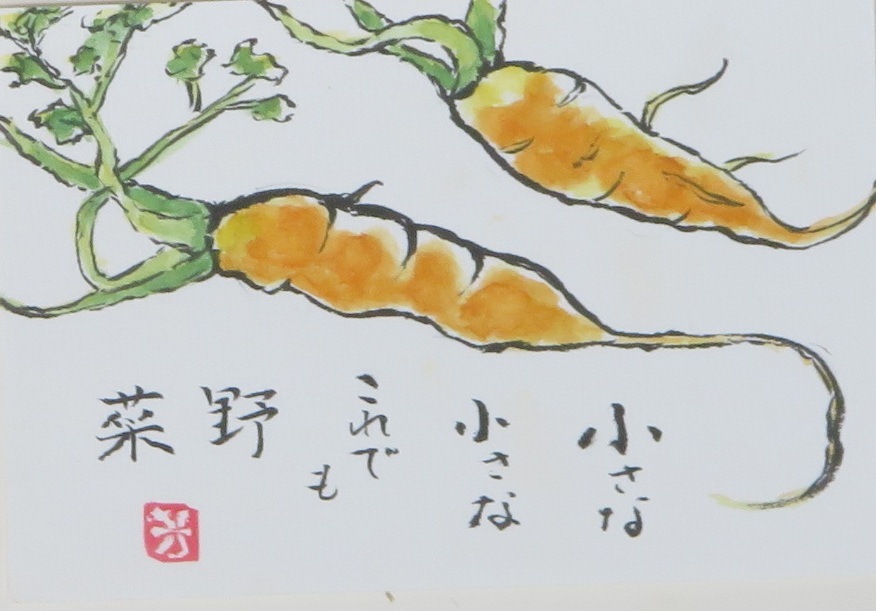 小さな
小さな
これでも
野
菜